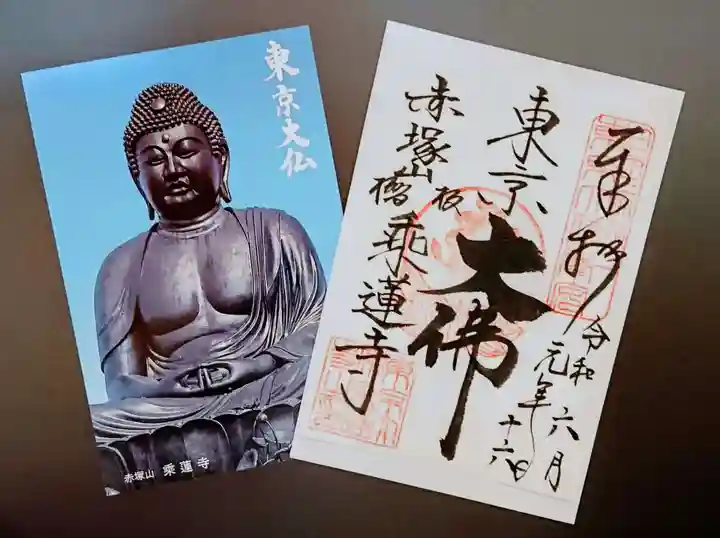 東京大仏
赤塚山 乗蓮寺
奉拝
令和元年六月
十六日
東京
大佛
赤塚山
板橋
乗蓮寺